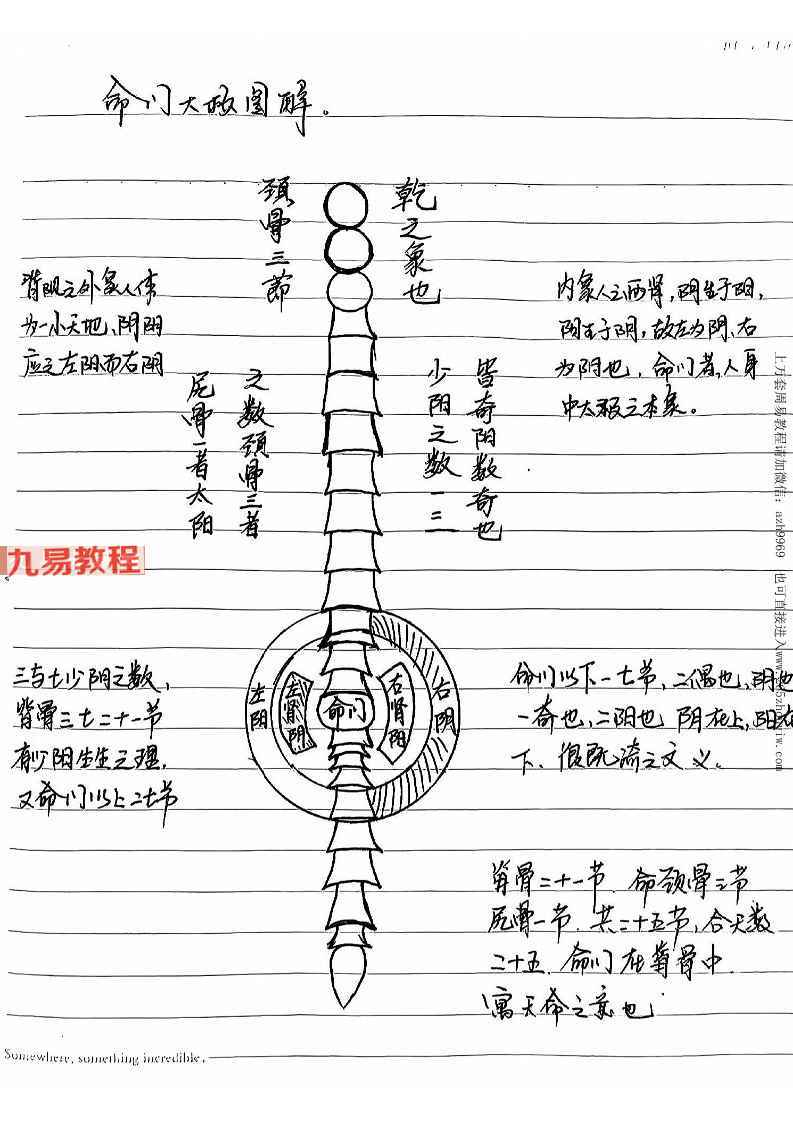 命门大极图解。
颈骨三節
乾之象也
背阳之外象人体
为一小天地、阴阳
应之左阳而右阴
内象人之两肾,阴生于阳,
阳生于阴,故左为阴、右
为阳也,命门者,人身
中太极之本象。
尻骨一者太阳
之数颈骨三者
少阳之数一三
皆奇阳数奇也
九易教程
左阳
左肾阴
命门
右肾阳
右阴
三与七少阴之数,
背骨三七二十一节
有少阳生生之理,
又命门以上二七节
命门以下一七节,二偶也,阴也
一奇也,二阳也 阴在上,阳在
下、很既济之文义。
脊骨二十一节 命颈骨三节
尻骨一节 共二十五节,合天数
二十五 命门在脊骨中
寓天命之意也
上万套周易教程请加微信:azh9969 也可直接进入
Somewhere, something incredible.